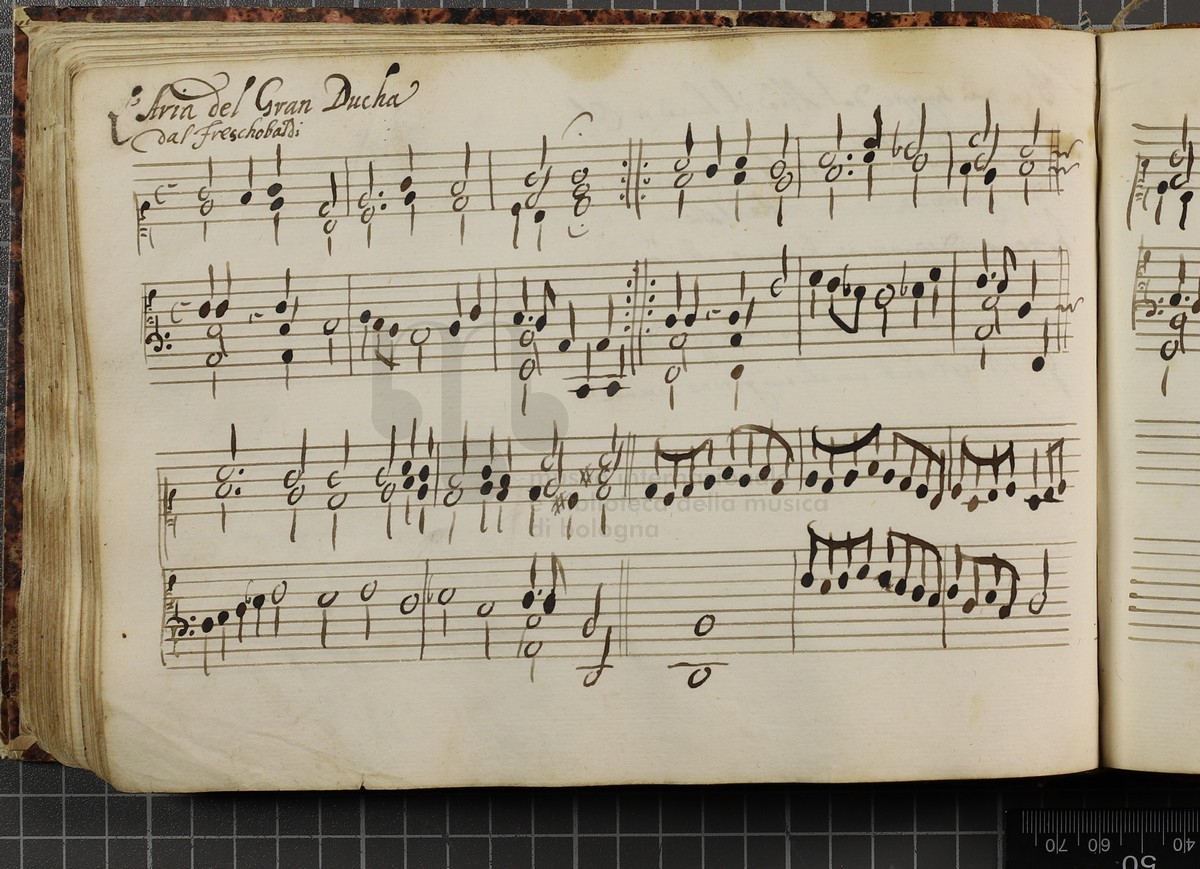 Aria del Gran Ducha
dal freschobaldi
museo internazionale
e biblioteca della musica
di bologna
70
60
50
40